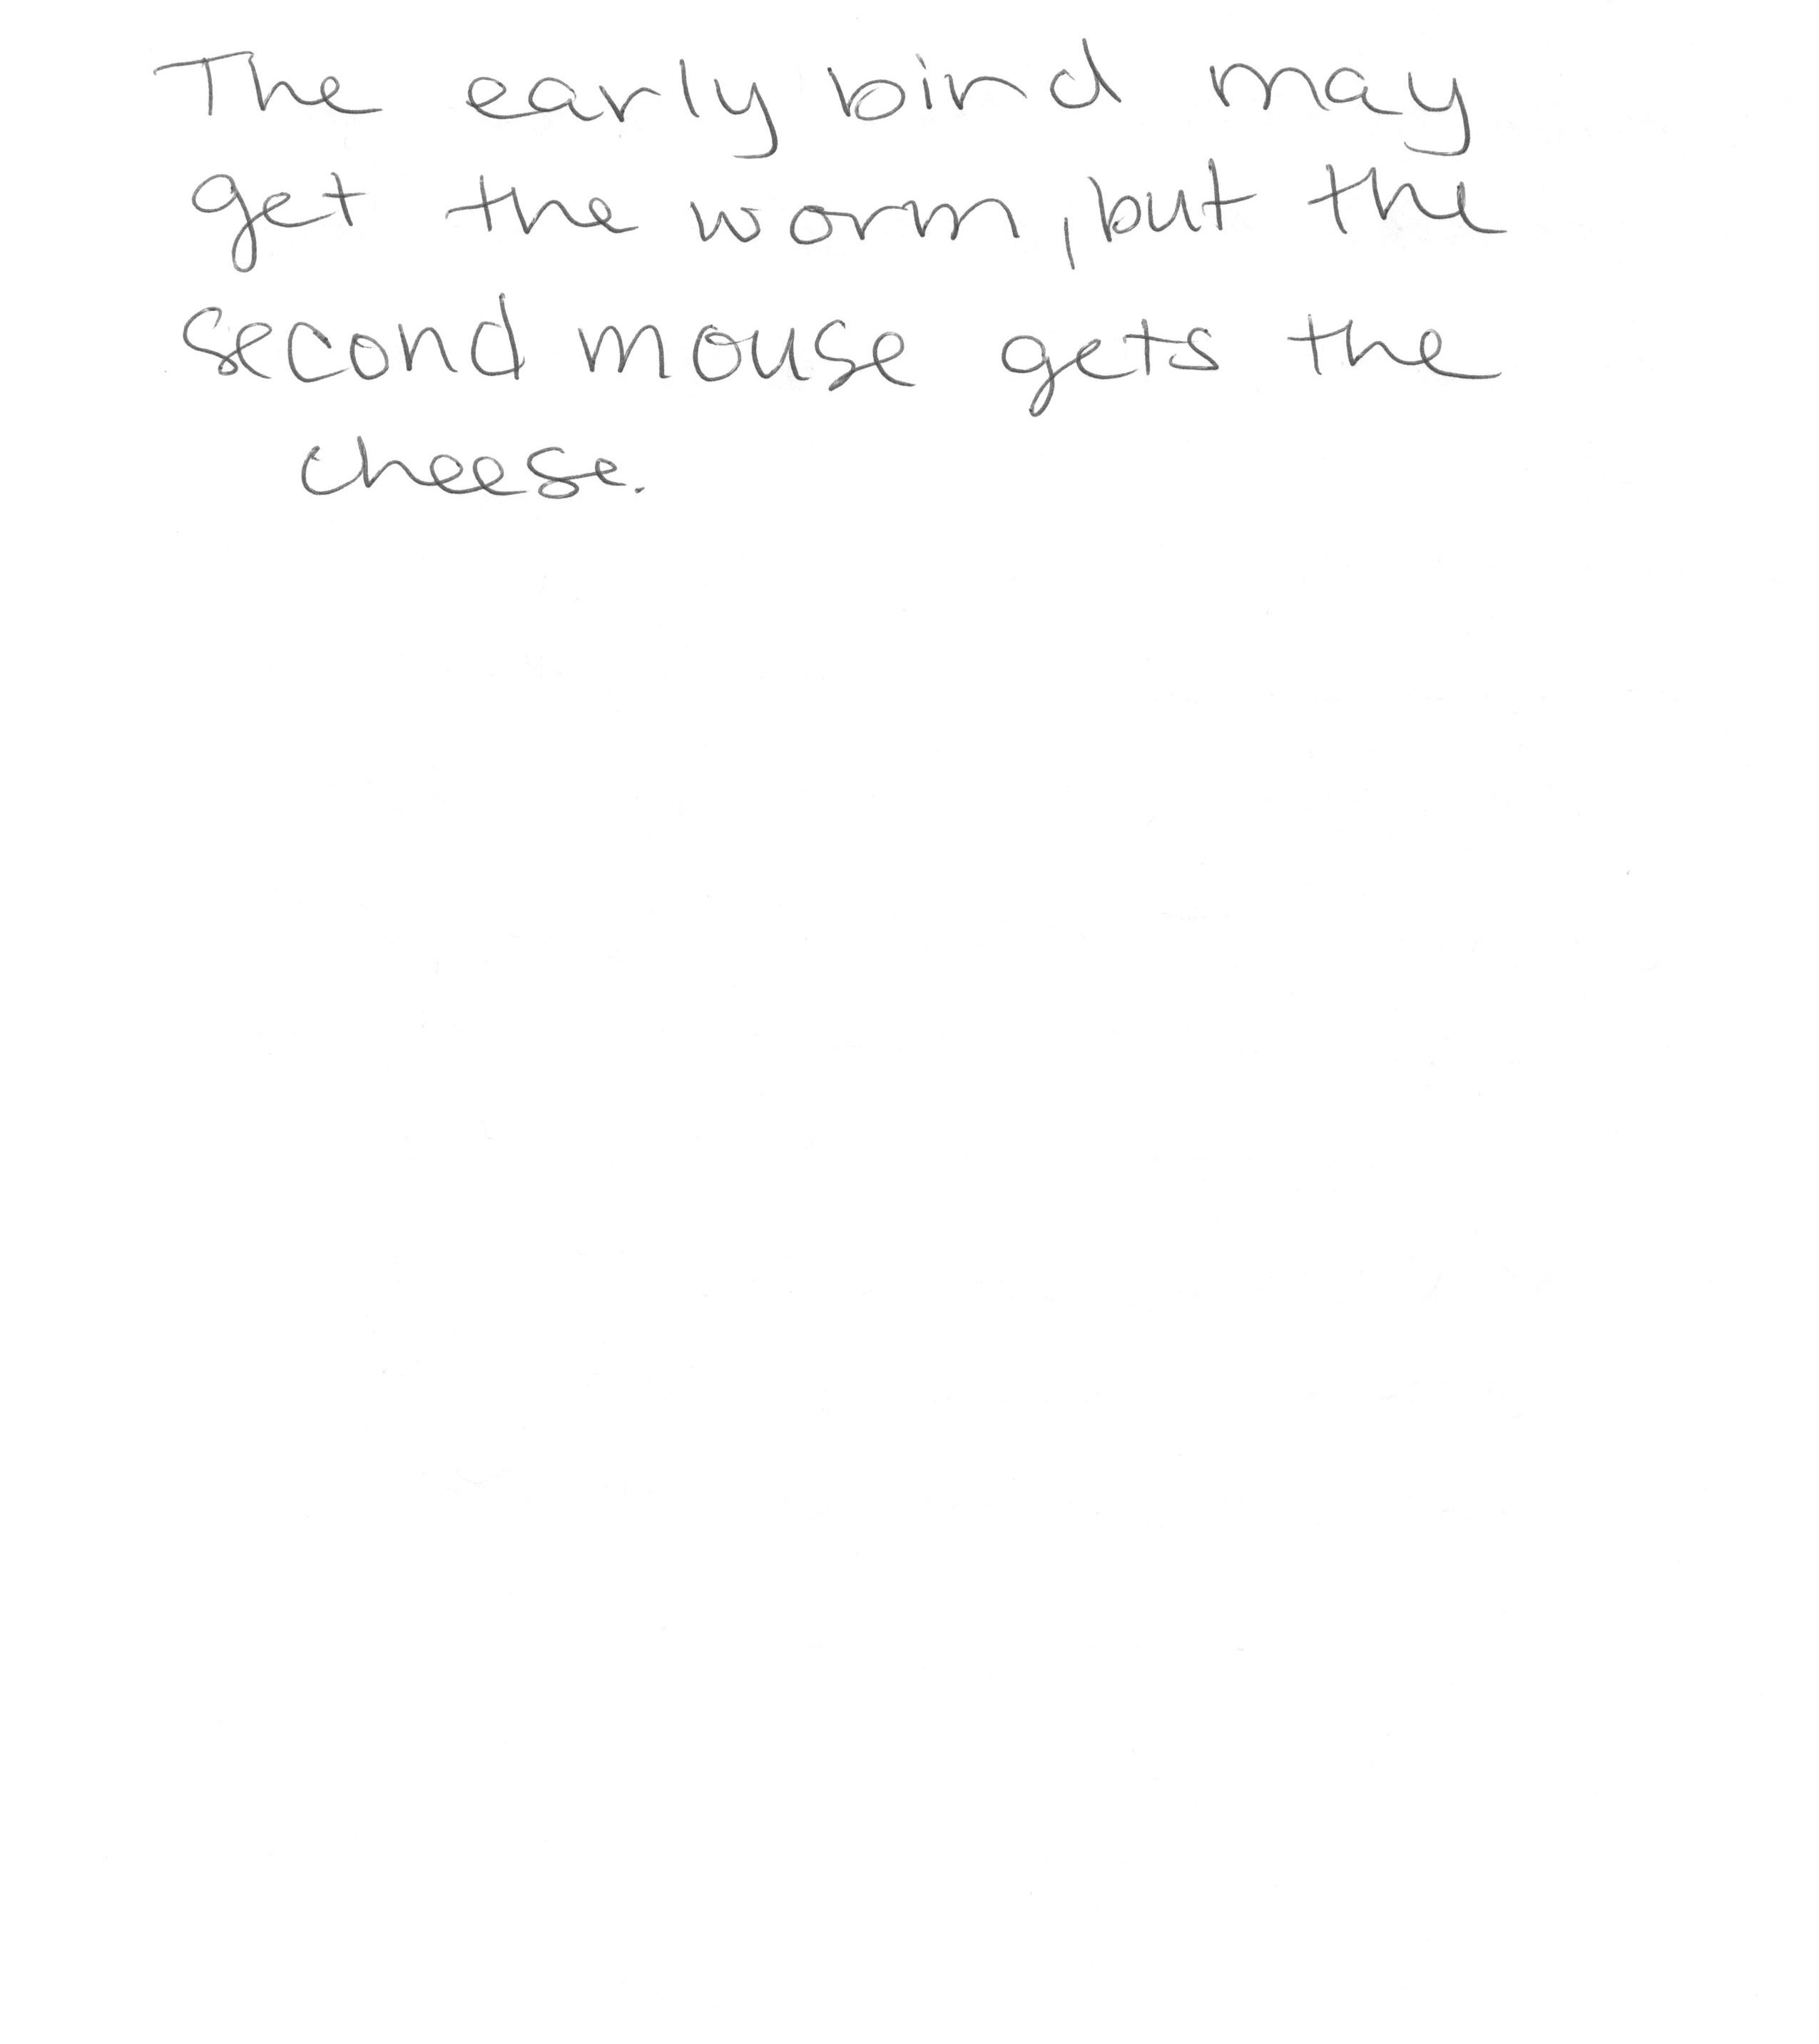 The early bird may
get the worm, but the
second mouse gets the
cheese.